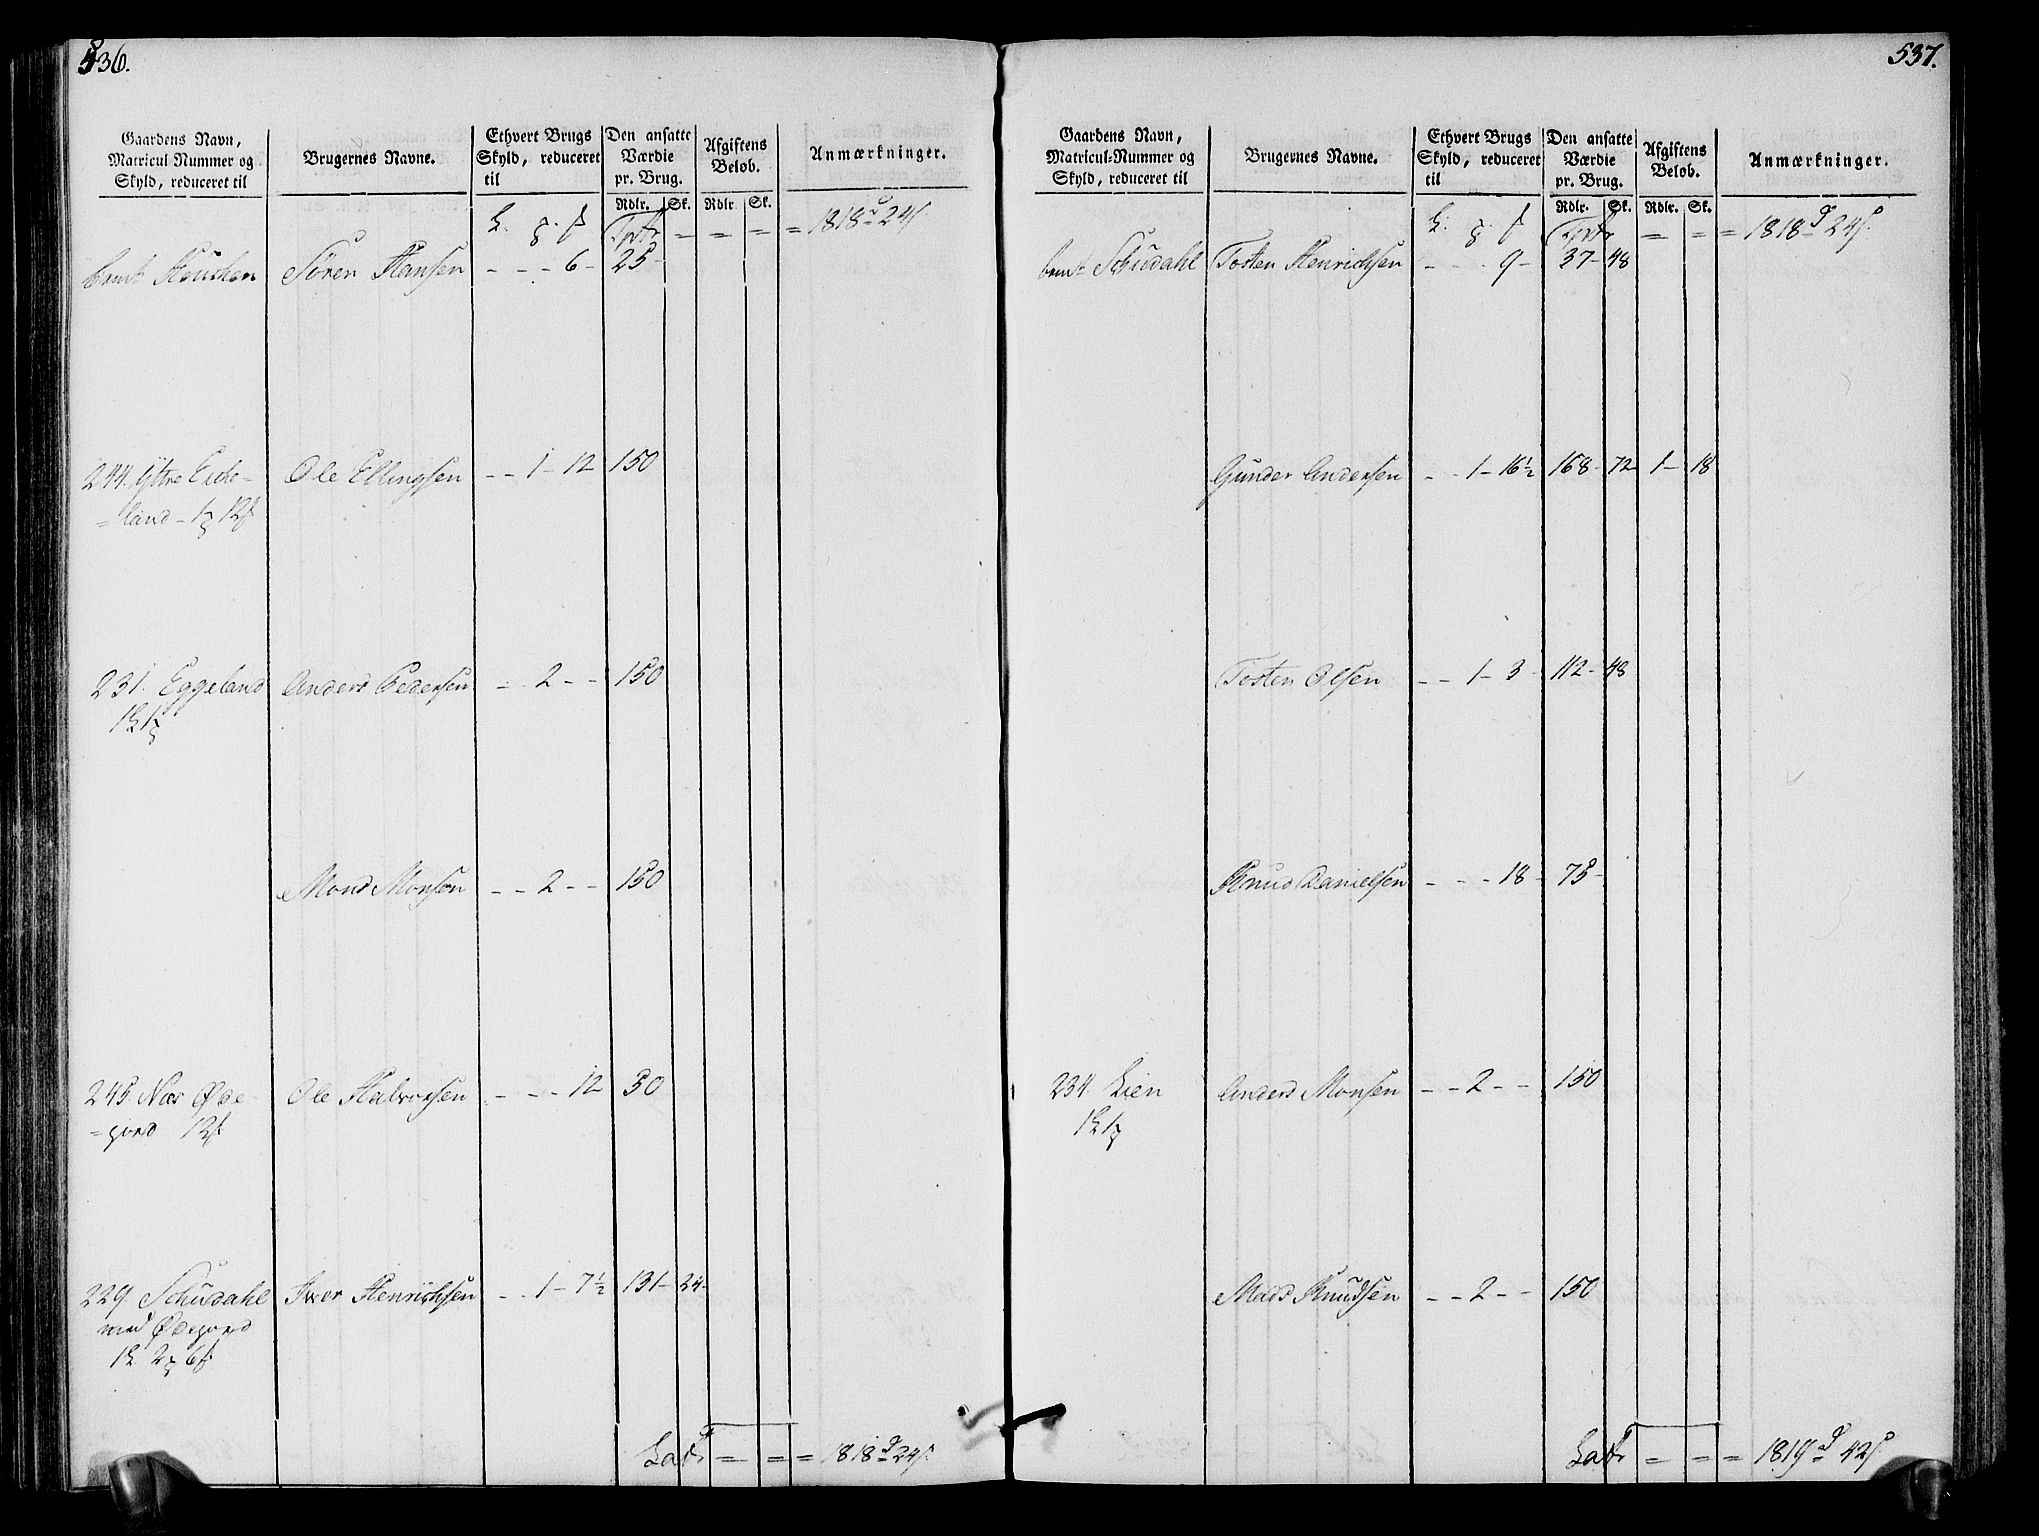 536.
Gaardens Navn,
Matricul Nummer og
Skyld, reduceret til
Brugernes Navne.
Ethvert Brugs
Skyld, reduceret
til
Den ansatte
Værdie
pr. Brug.
Afgiftens
Beløb.
Anmærkninger.
Rdlr. Sk. Rdlr. Sk.
= = = = 1818 d 24 s.
Søren Hansen - - - 6 - 25 -
244. Yttre Eide- Ole Ellingsen - - 1 - 12 150
=land - 1 12
231. Eggeland Anders Pedersen - - 2 - - 150
Mons Monsen - - 2 - - 150
245. Næs Øde- Ole Halvorsen - - - 12 30
=gord 12
229. Schusdahl Iver Henrichsen - - 1 - 7½ 131 - 24 -
med Ødegord
1 2 6
Latr = = = 1818 d 24 s.
537.
Gaardens Navn,
Matricul-Nummer og
Skyld, reduceret til
Brugernes Navne.
Ethvert Brugs
Skyld, reduceret
til
Den ansatte
Værdie
pr. Brug.
Afgiftens
Beløb.
Anmærkninger.
Rdlr. Sk. Rdlr. Sk.
= = = 1818 d 24 s.
Schusdahl Tosten Henrichsen - - - 9 - 37 - 48
Gunder Andersen - - 1 - 16½ 168 - 72 1 - 18
Tosten Olsen - - 1 - 3 - 112 - 48
Knud Danielsen - - - 18 - 75 -
234. Lien Anders Monsen - - 2 - - 150
Mads Knudsen - - 2 - - 150
Latr = = = 1819 d 42 s.